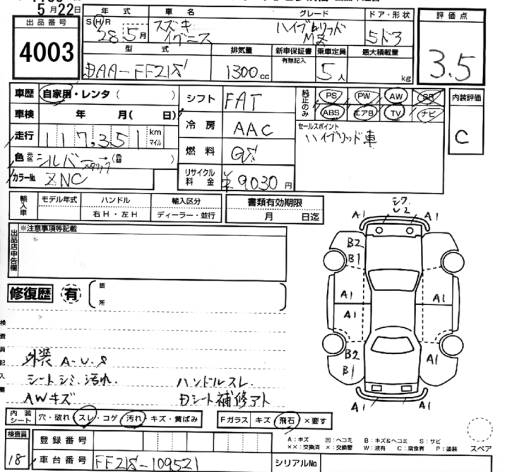 5月22日
出品番号
4003
年式 車名 グレード ドア・形状
S(H)R 28.5月 スズキ イグニス ハイブリッド MZ 5ドア
型式 排気量 新車保証書 乗車定員 最大積載量
有無記入
DAA-FF21S 1300cc 5人 kg
評価点
3.5
車歴 自家用・レンタ( )
車検 年 月( 日)
走行 117,351 km マイル
色 シルバー メタリック
カラーNo. ZNC
シフト FAT
冷房 AAC
燃料
リサイクル料金 ¥9030円
純正のみ PS PW AW SR
ABS エアB TV ナビ
セールスポイント
ハイブリッド車
内装評価
C
輸入車 モデル年式 ハンドル 輸入区分
右H・左H ディーラー・並行
書類有効期限
月 日迄
出品店申告欄
※注意事項等記載
修復歴 有
箇所
検査員記入欄
外装 A・U・S
シートシミ、汚れ ハンドルスレ
AWキズ Dシート補修アト
A1 A1
B2
B1
A1
A1
A1
A1
A1
B2
B1
A1
A1 A1
内装シート 穴・破れ スレ・コゲ 汚れ キズ・黄ばみ
Fガラス キズ 飛石 ×要す
検査員
18
登録番号
車台番号 FF21S-109521 シリアルNo
A：キズ 凹：ヘコミ B：キズ&ヘコミ S：サビ
××：交換済 ×：要交換 W：波有 C：腐食 P：塗装
スペア